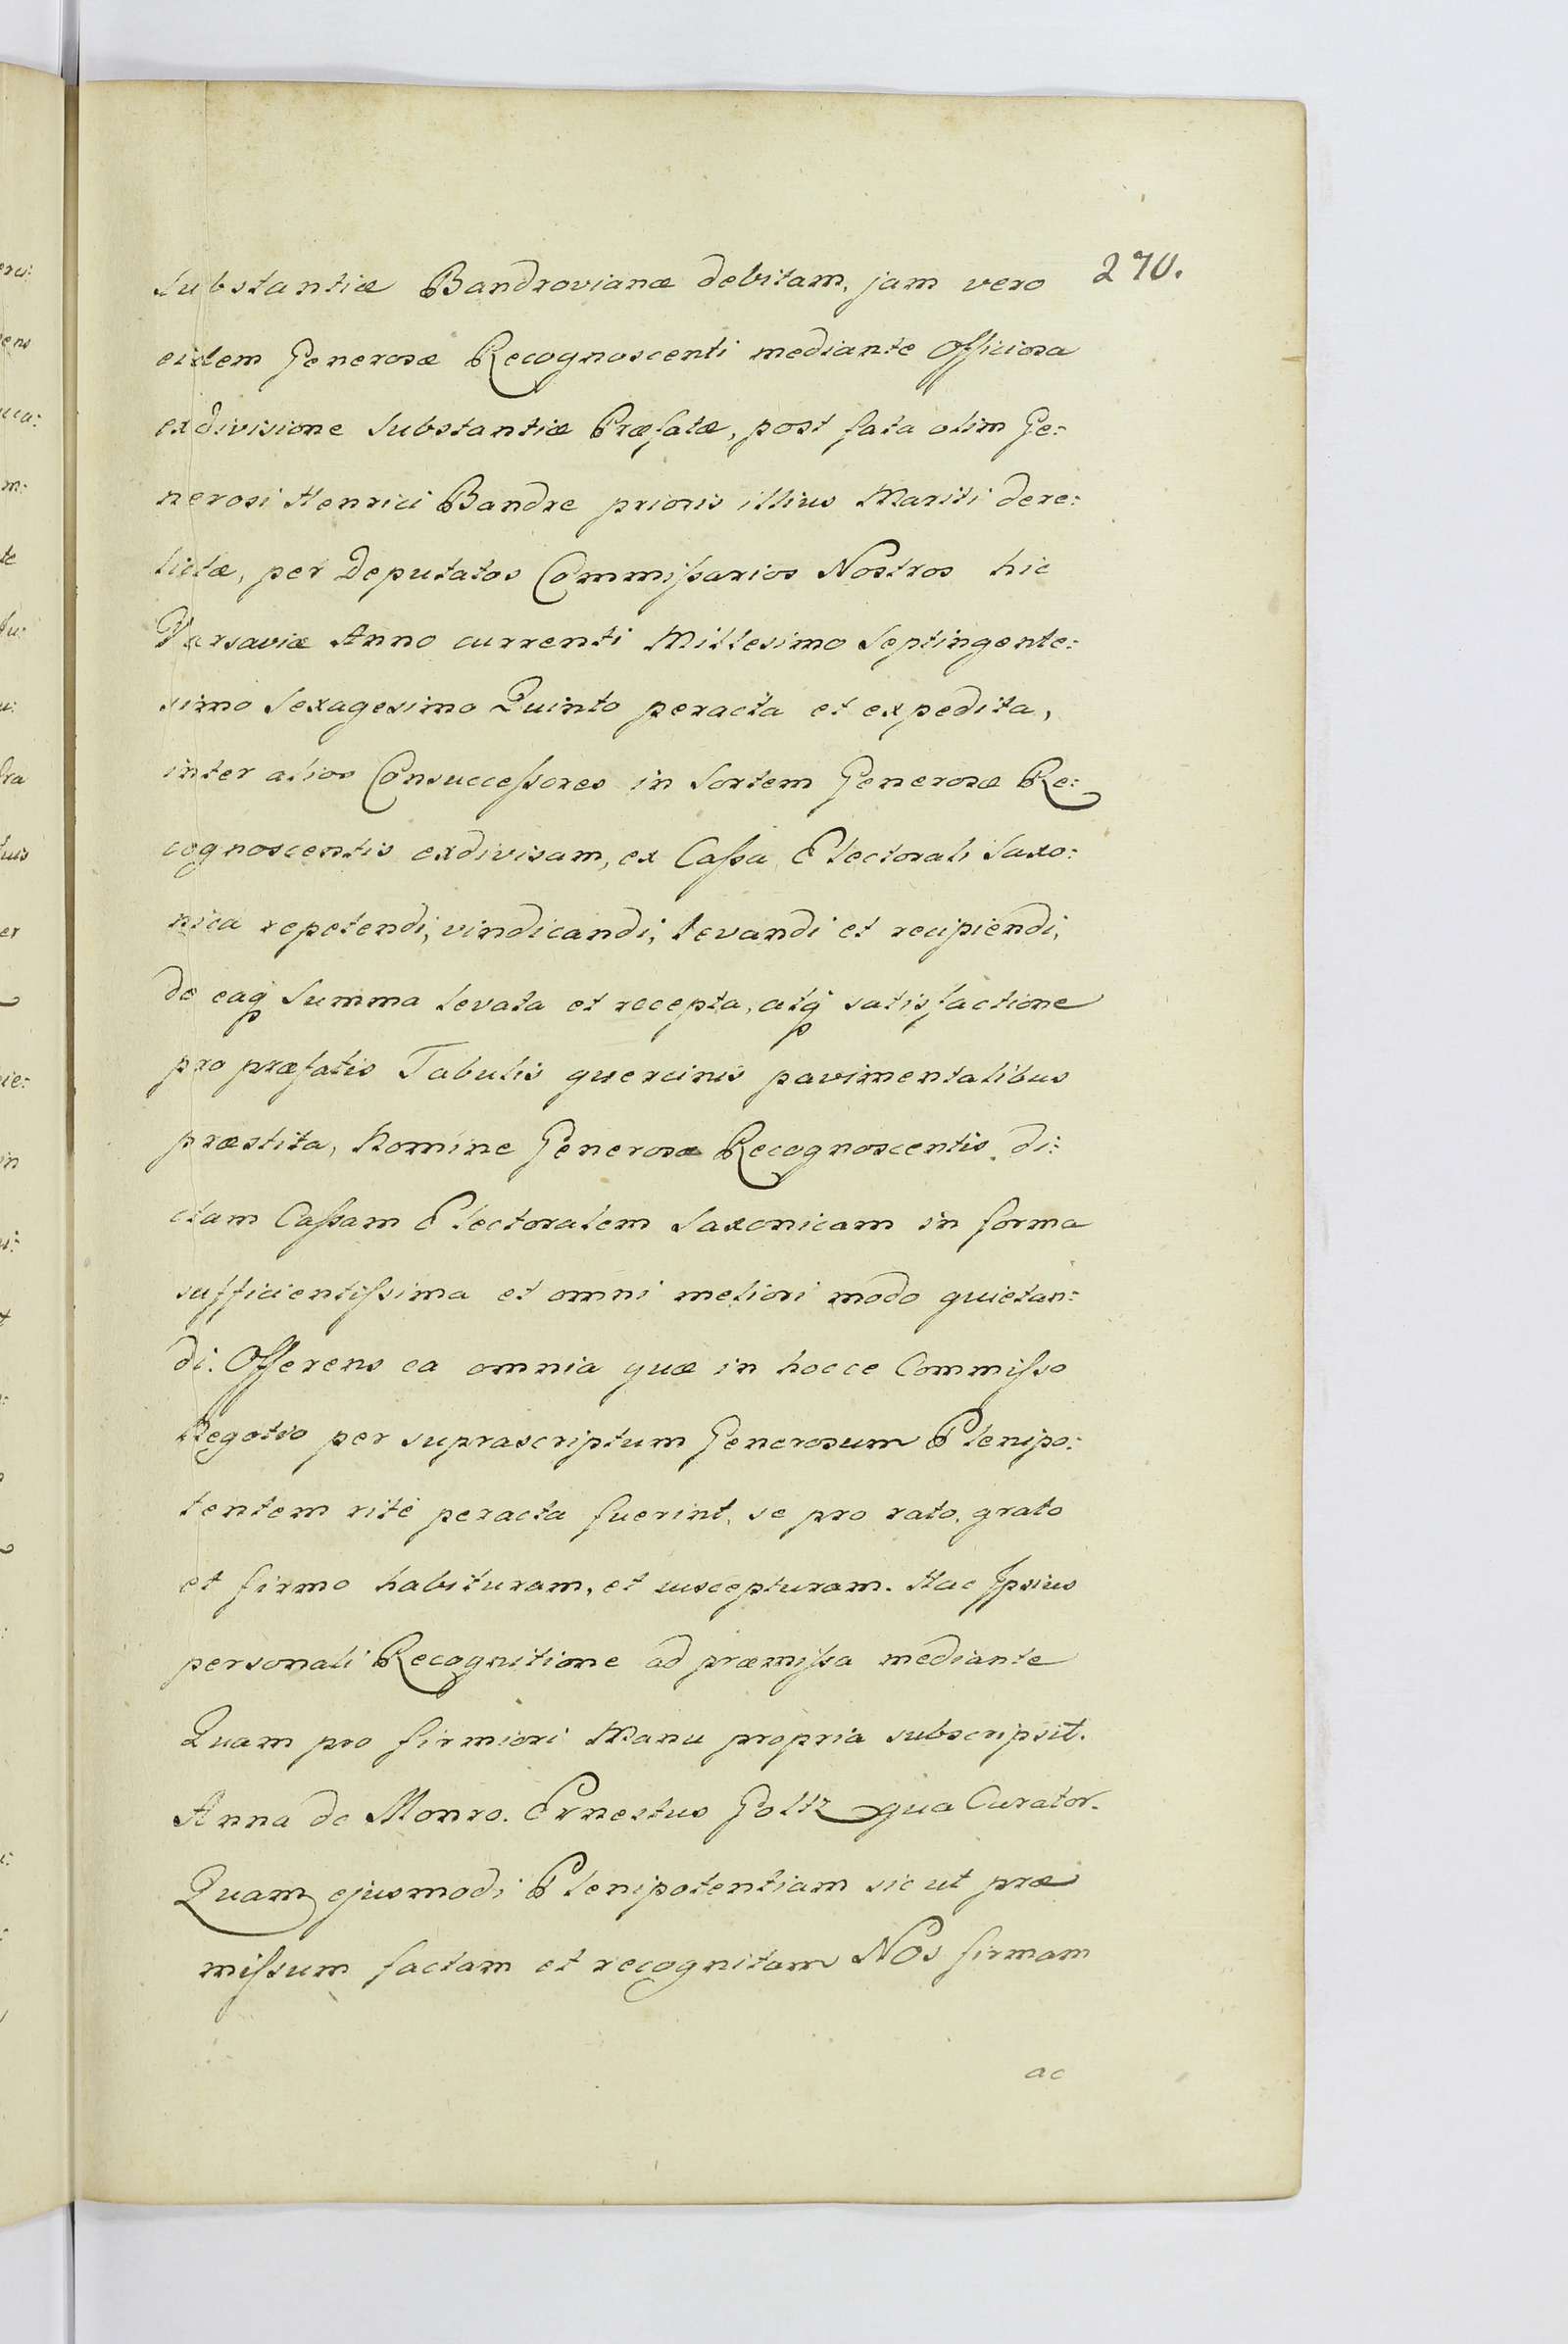 270.
Substantiæ Bandrovianæ debitam, jam vero
eidem Generosæ Recognoscenti mediante Officiosa
exdivisione Substantiæ Præfatæ, post fata olim Ge:
nerosi Henrici Bandre prioris illius Mariti dere:
lictæ, per Deputatos Commiſsarios Nostros hic
Varsaviæ Anno currenti Millesimo Septingente:
simo Sexagesimo Quinto peracta et expedita,
inter alios Consucceſsores in Sortem Generosæ Re:
cognoscentis exdivisam, ex Caſsa Electorali Saxo:
nica repetendi, vindicandi, levandi et recipiendi,
de eaq̃ Summa levata et recepta, atq̃ satisfactione
pro præfatis Tabulis quercinis pavimentalibus
præstita, Nomine Generosæ Recognoscentis di:
ctam Caſsam Electoralem Saxonicam in forma
sufficientiſsima et omni meliori modo quietan:
di. Offerens ea omnia quæ in hocce Commiſso
Negotio per suprascriptum Generosum Plenipo:
tentem rité peracta fuerint, se pro rato, grato
et firmo habituram, et suscepturam. Hac Ipsius
personali Recognitione ad præmiſsa mediante
Quam pro firmiori Manu propria subscripsit.
Anna de Monro. Ernestus Goltz qua Curator.
Quam ejusmodi Plenipotentiam sic ut præ
miſsum factam et recognitam NOs firmam
ac